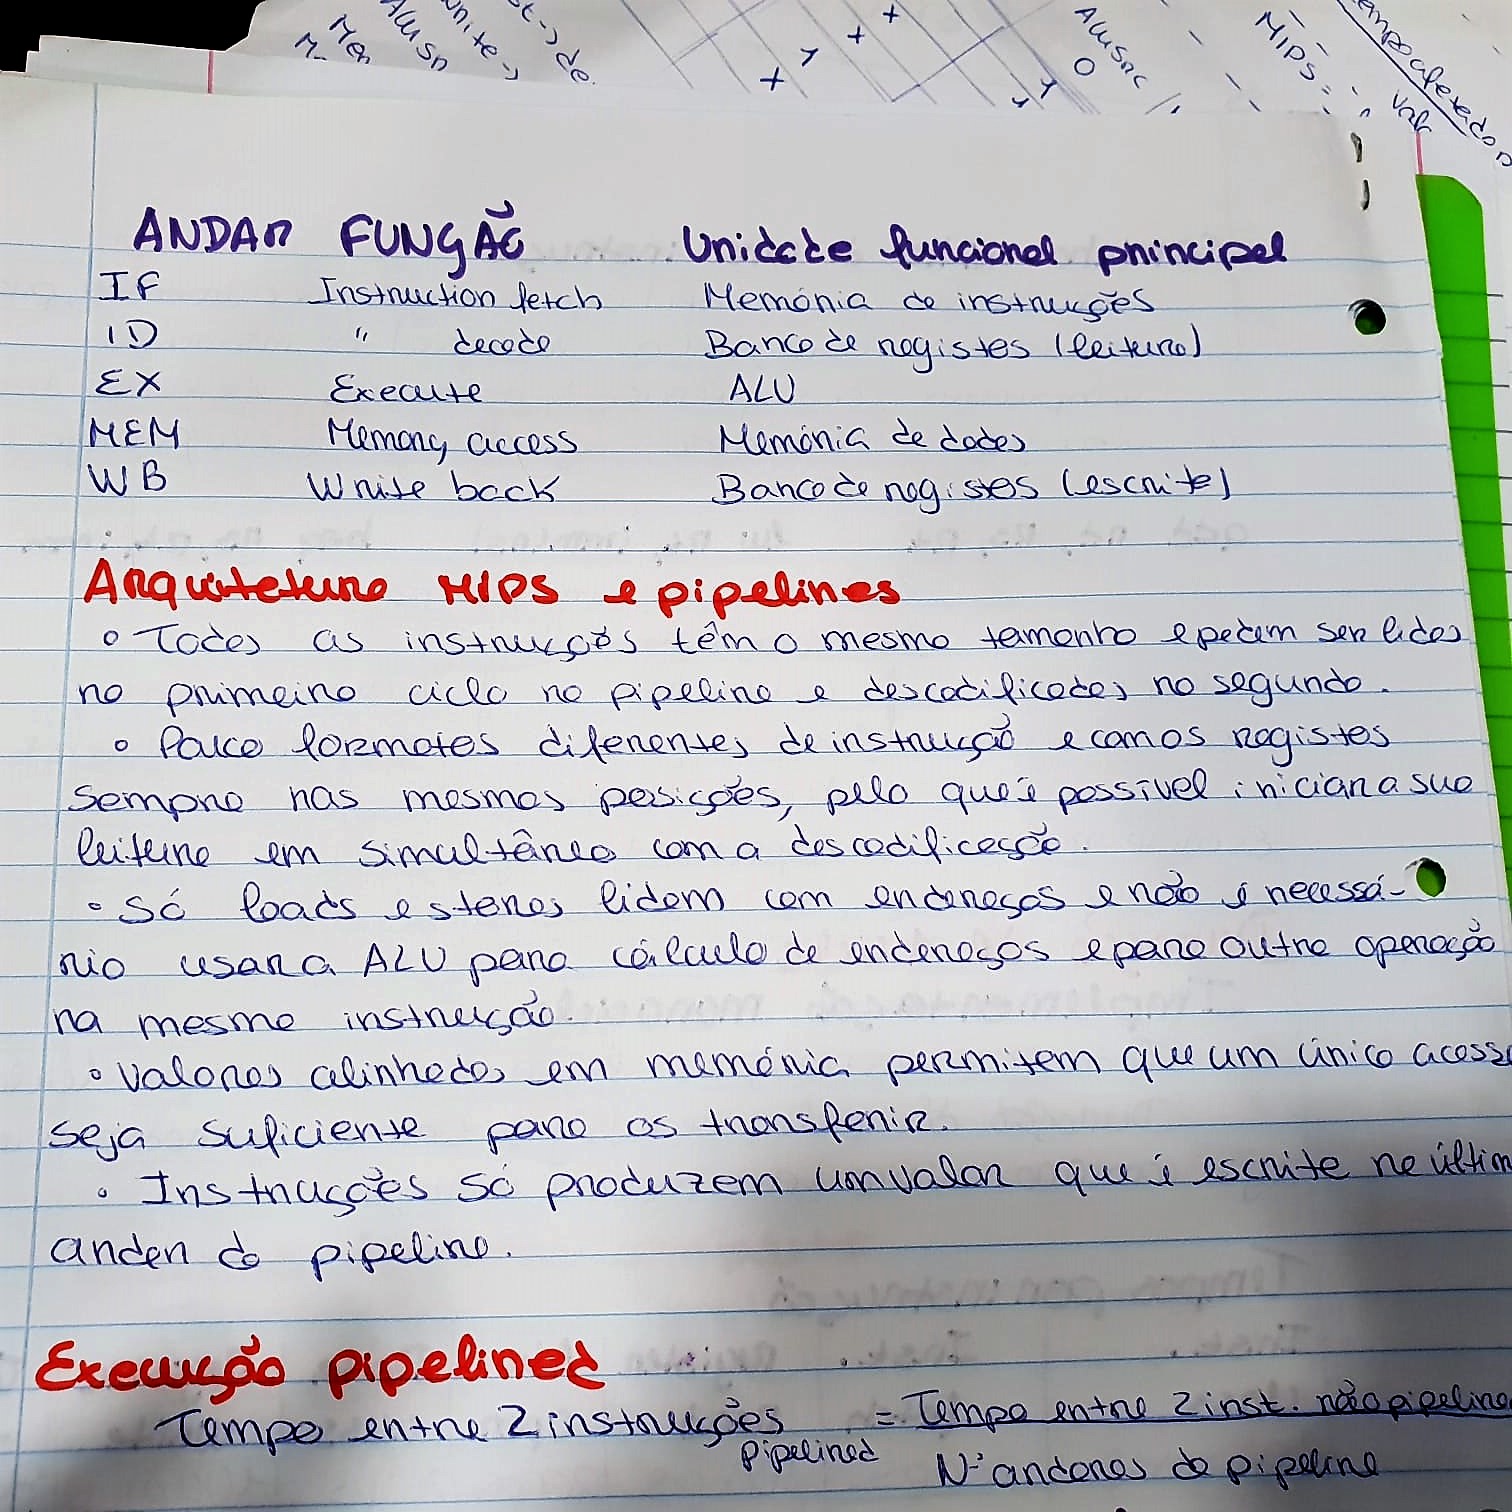 ANDAR FUNÇÃO Unidade funcional principal
IF Instruction fetch Memória de instruções
ID " decode Banco de registos (leitura)
EX Execute ALU
MEM Memory access Memória de dados
WB Write back Banco de registos (escrita)
Arquitetura MIPS e pipelines
• Todas as instruções têm o mesmo tamanho e podem ser lidas
no primeiro ciclo no pipeline e descodificadas no segundo.
• Pouco formatos diferentes de instrução e com os registos
sempre nas mesmas posições, pelo que é possível iniciar a sua
leitura em simultâneo com a descodificação.
• Só loads e stores lidam com endereços e não é necessá-
rio usar a ALU para cálculo de endereços e para outra operação
na mesma instrução.
• Valores alinhados em memória permitem que um único acesso
seja suficiente para os transferir.
• Instruções só produzem um valor que é escrito no últim
andar do pipeline.
Execução pipelined
Tempo entre 2 instruções pipelined = Tempo entre 2 inst. não pipeline
Nº andares do pipeline